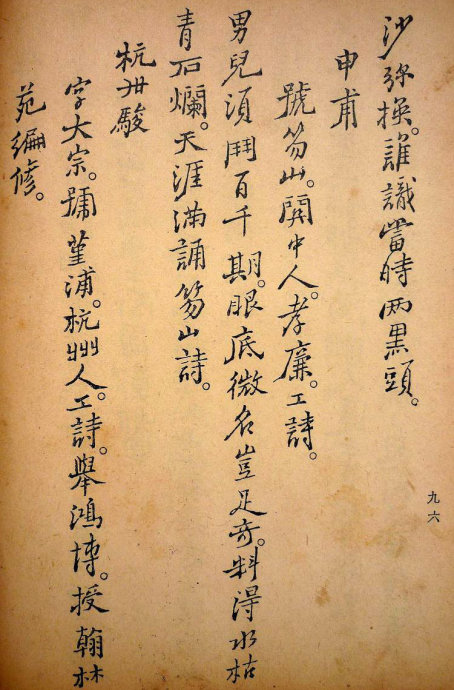 沙弥換。誰識當時两黑頭。
申甫
號笏山。関中人。孝廉。工詩。
男兒須鬥百千期。眼底微名豈足奇。料得水枯
青石爛。天涯滿誦笏山詩。
杭世駿
字大宗。號堇浦。杭州人。工詩。舉鴻博。授翰林
苑編修。
九六